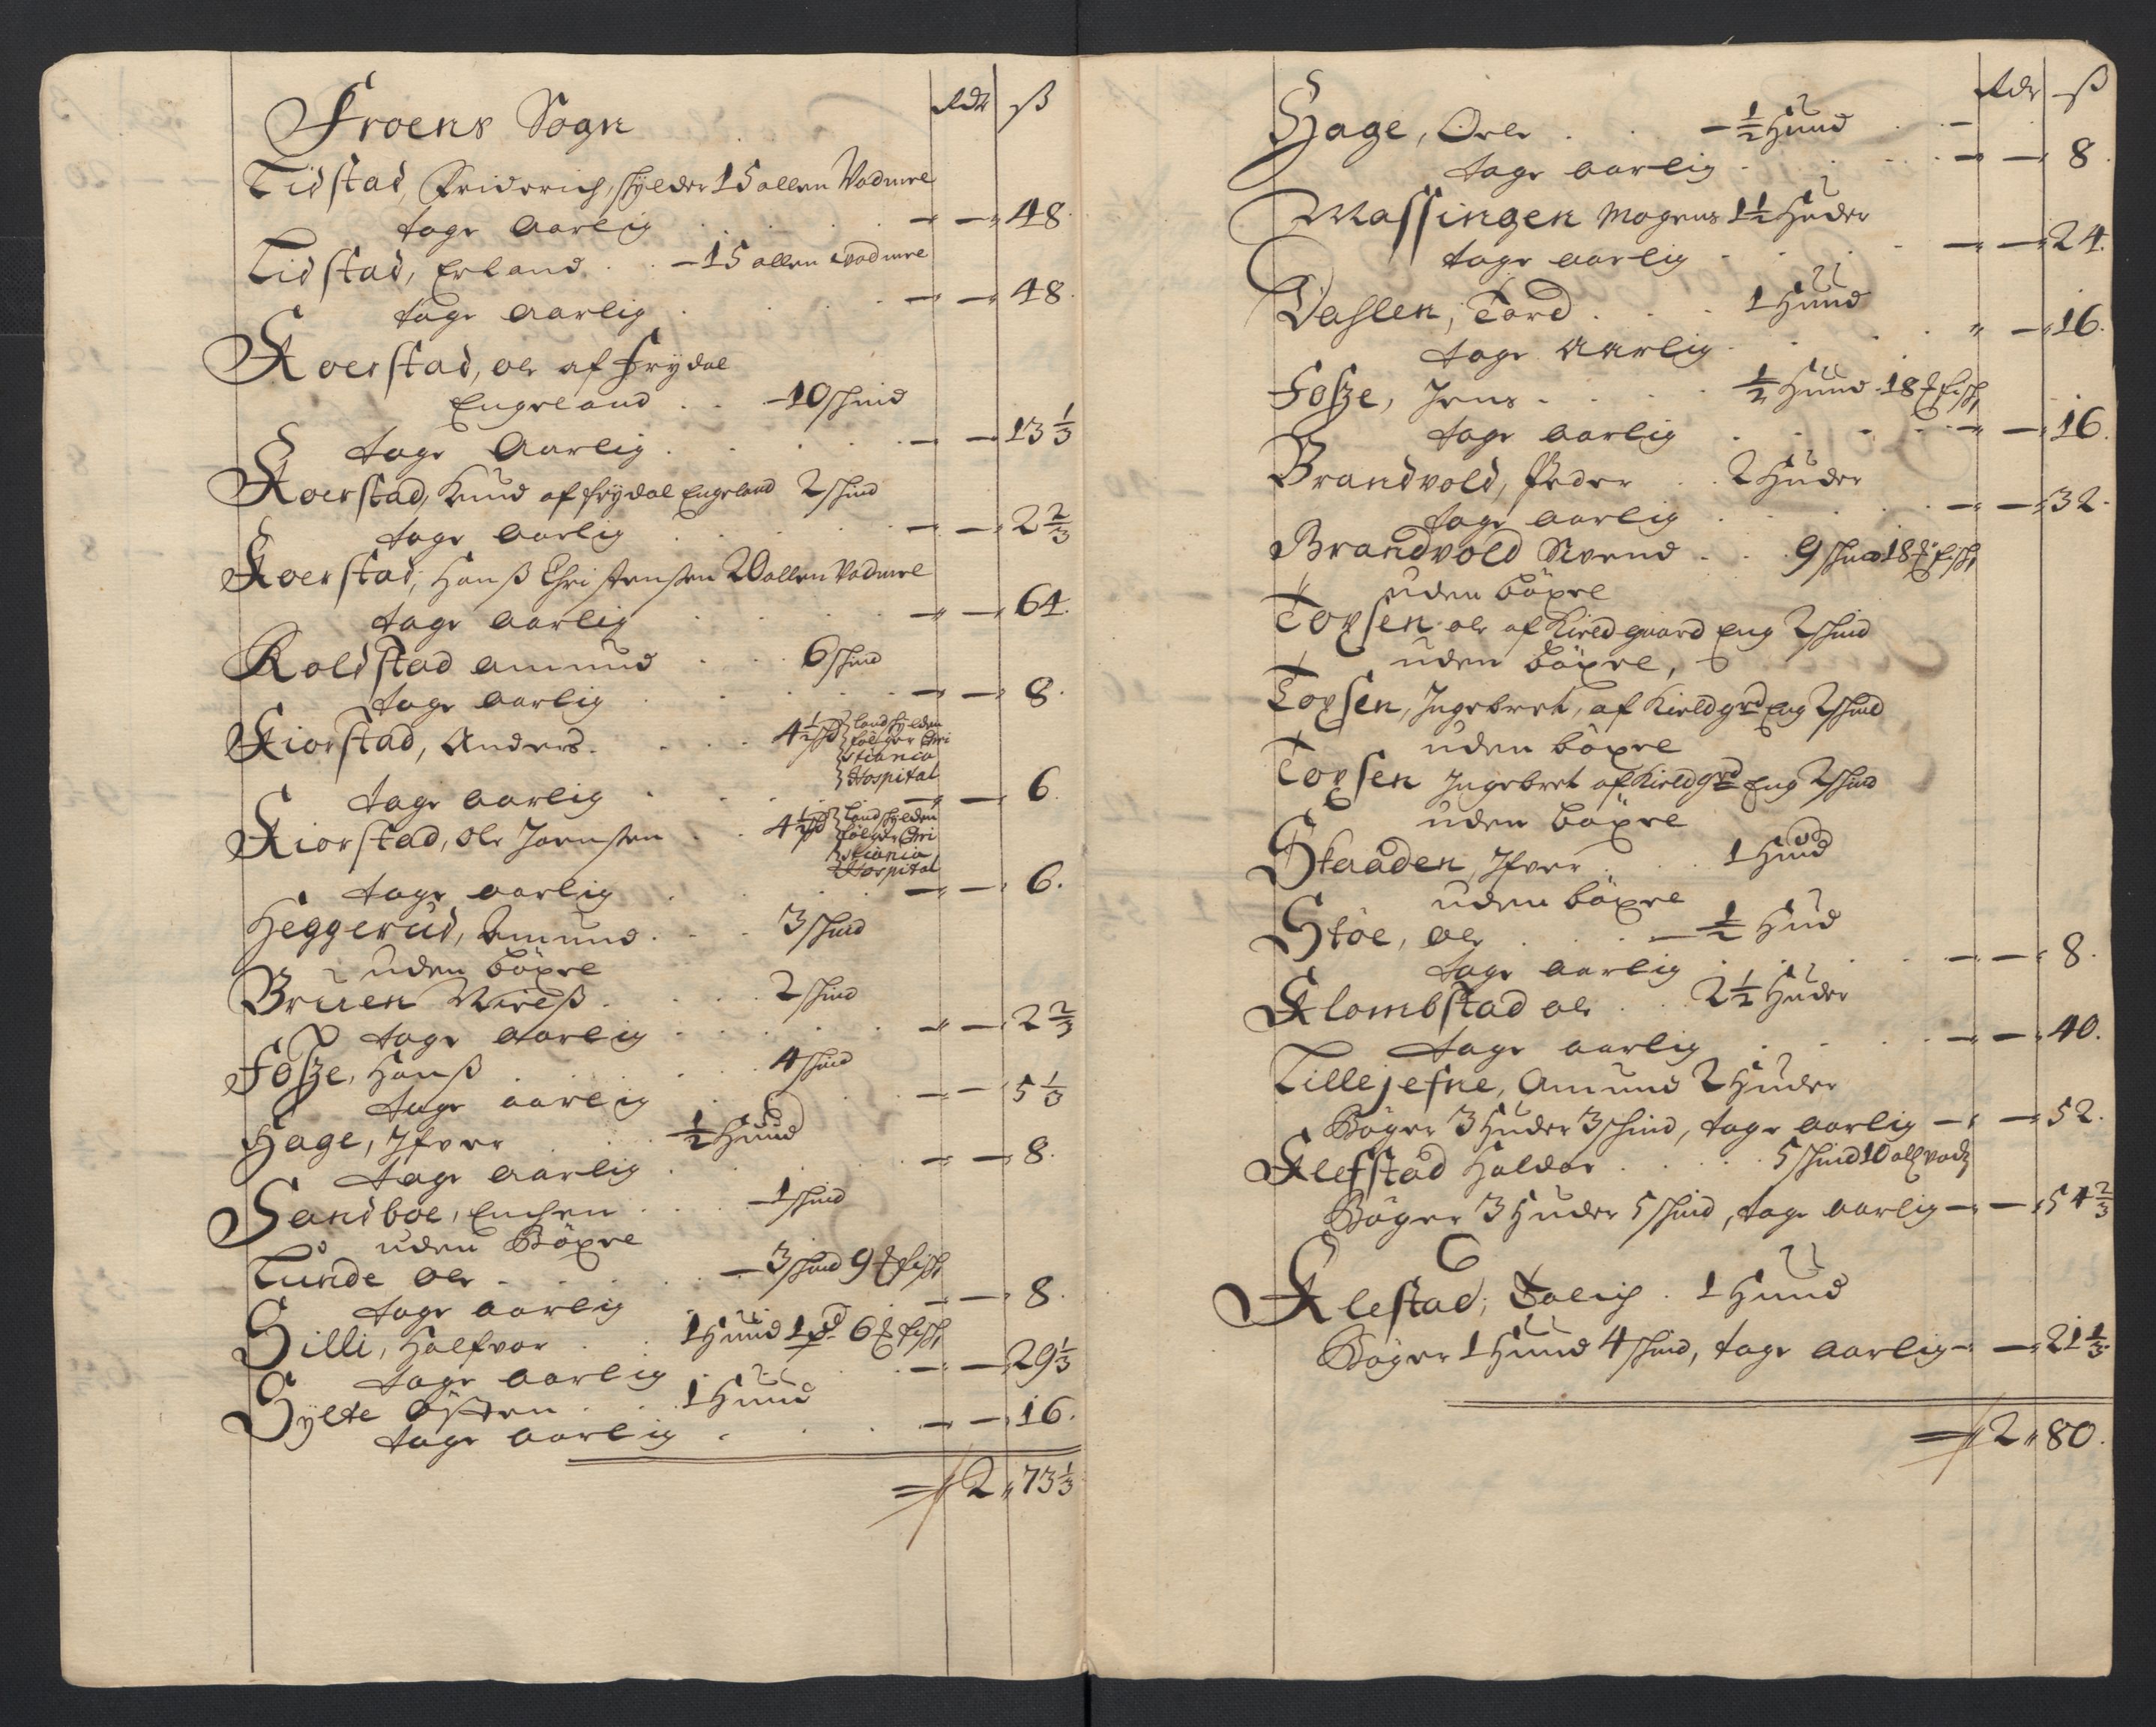 Rdr ß
Froens Sogn
Lidstad, Friderich, skylder 15 allen Vadmel
tage aarlig — — 48.
Lidstad, Erland . . — 15 allen vadmel
tage aarlig — — 48.
Koerstad, ole af frydal
Engeland . . — 10 skind
tage aarlig . — — 13 1/3
Koerstad, Knud af frydal Engeland 2 skind
tage aarlig — — 2 2/3
Koerstad, Hanß Christensen 20 allen Vadmel
tage aarlig — — 64.
Roldstad amund . . 6 skind
tage aarlig — — 8.
Kiorstad, Anders . . . 4 1/2 sk landskylden
følger Chri
stiania
Hospital
tage aarlig . . — — 6
Kiorstad, Ole Joensen . . 4 1/2 sk landskylden
følger Chri
stiania
Hospital
tage aarlig . — — 6.
Heggerud, Amund . . . 3 skind
uden bøxel
Bruen . . . 2 skind
tage aarlig — — 2 2/3
Fosze, Hanß . . . 4 skind
tage aarlig — — 5 1/3
Hage, Ifver . . 1/2 Huud
tage aarlig — — 8.
Sandboe, Enchen . . . — 1 skind
uden Bøxel
Lunde ole . . . — 3 skind 9 ℔ fisk
tage aarlig — — 8.
Silli, Halfvor . 1 Huud 1 pd 6 ℔ fisk
tage aarlig — — 29 1/3
Sylte Østen . . 1 Huud
tage aarlig . — — 16.
2 73 1/3
Rdr ß
Hage, Ole . . — 1/2 Huud
tage aarlig — — 8.
Massingen Mogens 1 1/2 Huder
tage aarlig — — 24.
Dahlen, Tord . . . 1 Huud
tage aarlig — 16.
Fosze, Jens . . . 1/2 Huud 18 ℔ fisk
tage aarlig — — 16.
Brandvold, Peder . . 2 Huder
tage aarlig — — 32.
Brandvold Svend . . 9 skind 18 ℔ fisk
uden bøxel
Toxsen ole af Kieldgaard Eng 2 skind
uden bøxel,
Toxsen, Ingebret, af Kieldgrd Eng 2 skind
uden bøxel
Toxsen Ingebret af Kieldgrd Eng 2 skind
uden bøxel
Staaden, Ifver . . . 1 Huud
uden bøxel
Støe, ole . . . — 1/2 Hud
tage aarlig — — 8.
Klombstad ole . . 2 1/2 Huder
tage aarlig — — 40.
Lillejefne, Amund 2 Huder
Bøger 3 Huder 3 skind, tage aarlig — — 52.
Klefstad Haldor . . . 5 skind 10 all vadm
Bøger 3 Huder 5 skind, tage aarlig — — 54 2/3
Klestad, . 1 Huud
Bøger 1 Huud 4 skind, tage aarlig — — 21 1/3
2 80.